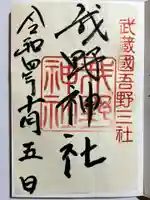 武蔵國吾野三社
我野神社
令和四年十月五日